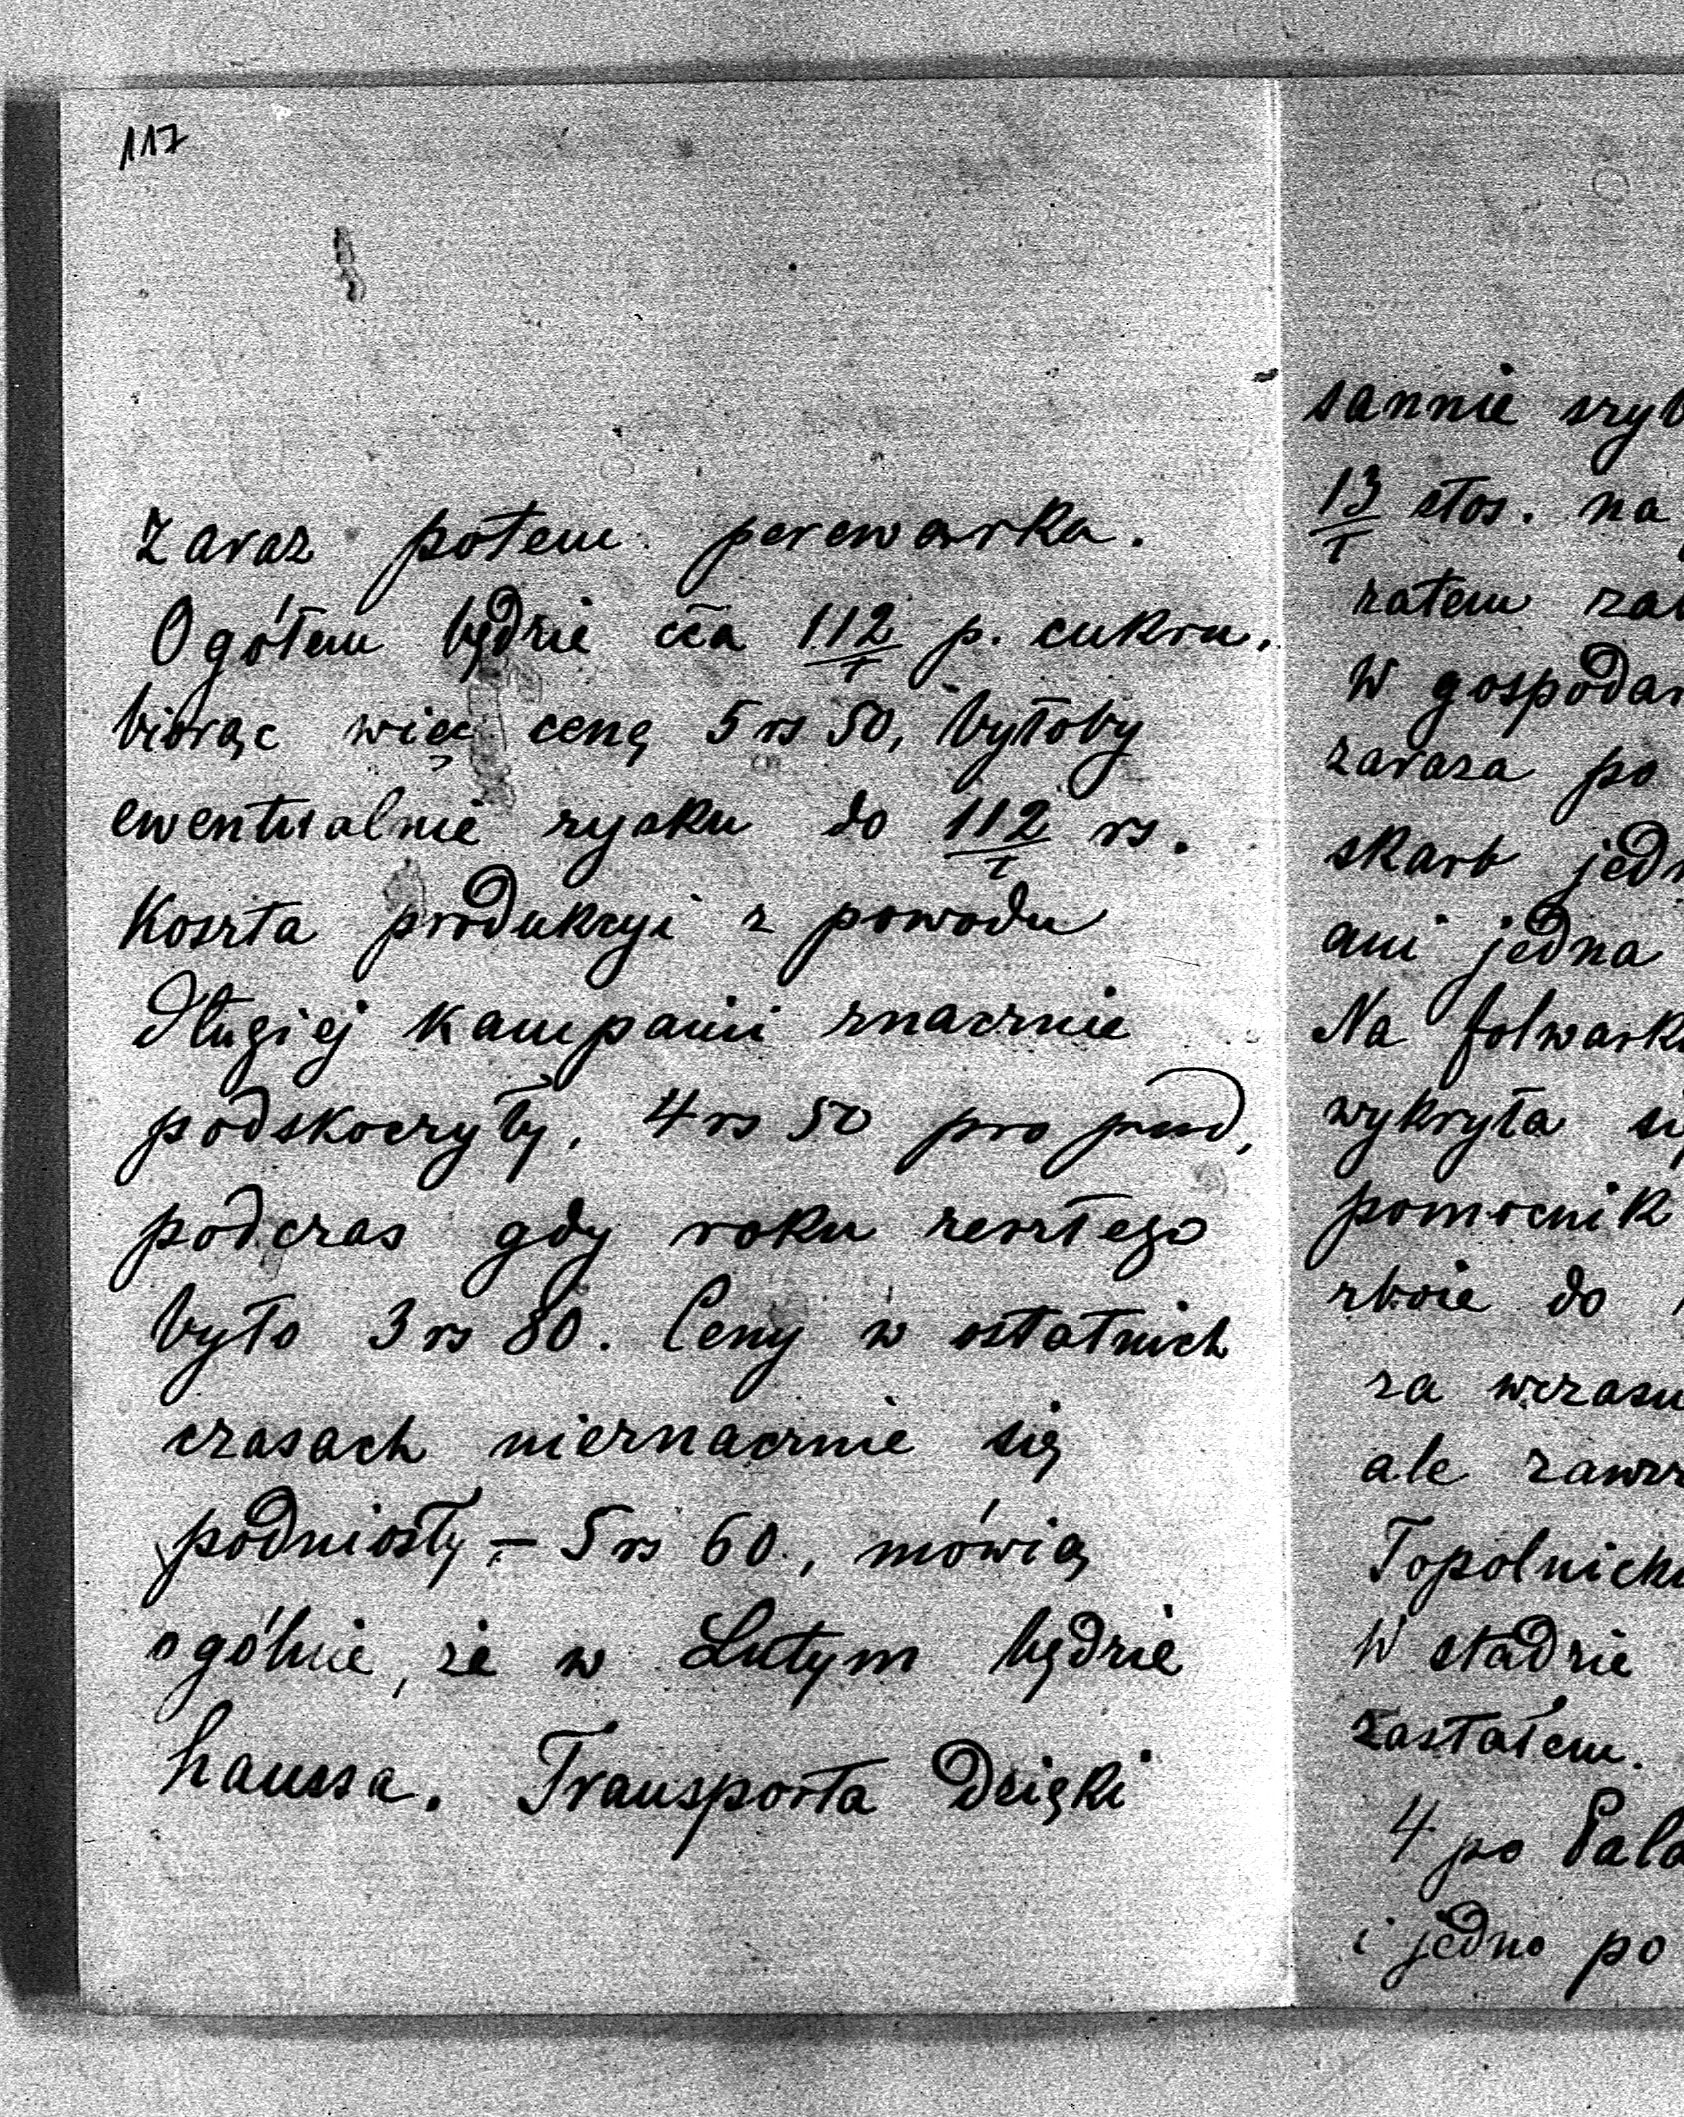 117
Zaraz potem perewarka.
Ogółem będzie cca 112/T p. cukru.
biorąc więc cenę 5 rs 50, byłoby
ewentualnie zysku do 112/T rs.
Koszta produkcyi z powodu
długiej kampanii znacznie
podskoczyły, 4 rs 50 pro pud,
podczas gdy roku zeszłego
było 3 rs 80. Ceny w ostatnich
czasach nieznacznie się
podniosły, – 5 rs 60, mówią
ogólnie, że w Lutym będzie
haussa. Transporta dzięki
sannie szyb
13/T stos. na
zatem zab
W gospodar
zaraza po
skarb jedn
ani jedna
Na folwark
wykryła się
pomocnik
zboże do
za wczasu
ale zawsz
Topolnick
W stadzie
zastałem.
4 po Pala
i jedno po